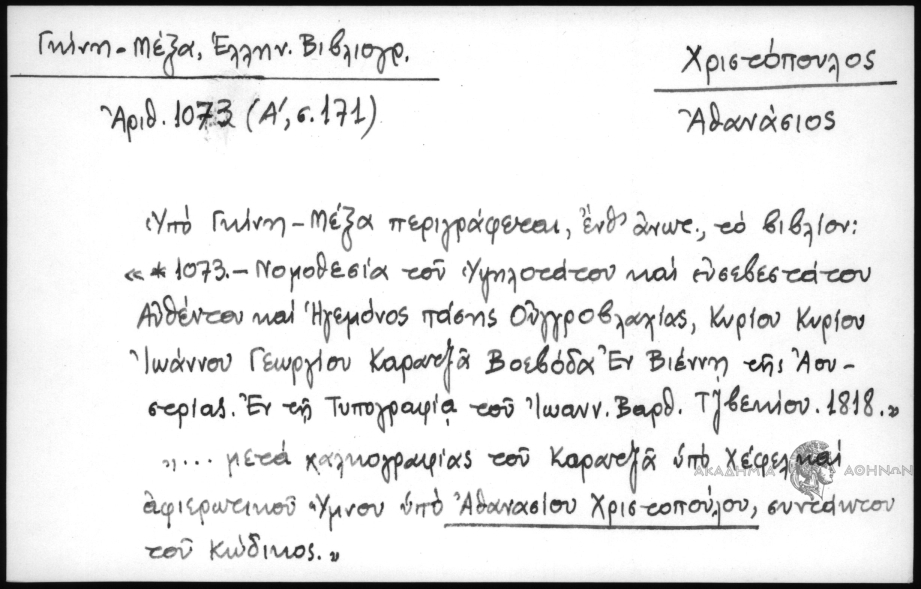 Γκίνη - Μέξα, Ἑλλην. Βιβλιογρ.
Χριστόπουλος
Ἀριθ. 1073 (Α', σ. 171)
Ἀθανάσιος
Ὑπό Γκίνη - Μέξα περιγράφεται, ἔνθ' ἀνωτ., τό βιβλίον:
« * 1073. - Νομοθεσία τοῦ Ὑψηλοτάτου καί εὐσεβεστάτου
Αὐθέντου καί Ἡγεμόνος πάσης Οὐγγροβλαχίας, Κυρίου Κυρίου
Ἰωάννου Γεωργίου Καρατζᾶ Βοεβόδα Ἐν Βιέννῃ τῆς Ἀου-
στρίας. Ἐν τῇ Τυπογραφίᾳ τοῦ Ἰωανν. Βαρθ. Τζβεκίου. 1818. »
» ... μετά χαλκογραφίας τοῦ Καρατζᾶ ὑπό Χέφελ καί
ΑΚΑΔΗΜΙΑ ΑΘΗΝΩΝ
ἀφιερωτικοῦ Ὕμνου ὑπό Ἀθανασίου Χριστοπούλου, συντάκτου
τοῦ Κώδικος. »